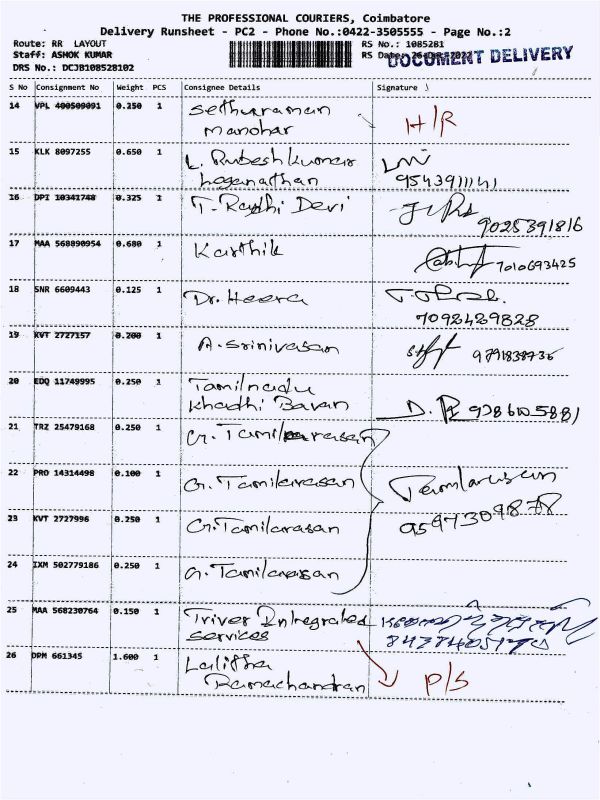 THE PROFESSIONAL COURIERS, Coimbatore
Delivery Runsheet - PC2 - Phone No.:0422-3505555 - Page No.:2
Route: RR LAYOUT
RS No.: 1085281
Staff: ASHOK KUMAR
RS Date:
DOCUMENT DELIVERY
DRS No.: DCJB108528102
S No Consignment No Weight PCS Consignee Details Signature
14 VPL 400509091 0.250 1 Sethuraman
Manohar H/R
15 KLK 8097255 0.650 1 L. Rubeshkumar
Loganathan 9543911141
16 DPI 10341748 0.325 1 T. Radhi Devi
9025391816
17 MAA 568890954 0.680 1 Karthik
7010693425
18 SNR 6609443 0.125 1 Dr. Heera
7092429828
19 KVT 2727157 0.200 1 A. Srinivasan
9791838736
20 EDQ 11749995 0.250 1 Tamilnadu
Khadhi Bavan
21 TRZ 25479168 0.250 1 G. Tamilarasan
22 PRO 14314498 0.100 1 G. Tamilarasan
Tamilarasan
9597309878
23 KVT 2727996 0.250 1 G. Tamilarasan
24 IXM 502779186 0.250 1 G. Tamilarasan
25 MAA 568230764 0.150 1 Triver Integrated
Services
26 DRM 661345 1.600 1 Lalitha
Ramachandran P/S